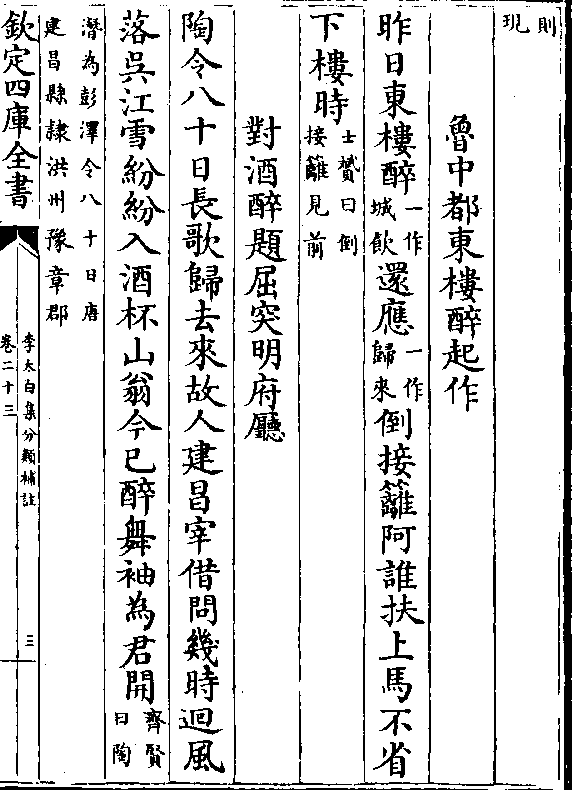 則
現
魯中都東樓醉起作
昨日東樓醉一作城飲還應一作歸來倒接䍦阿誰扶上馬不省
下樓時士贇曰倒接䍦見前
對酒醉題屈突明府廳
陶令八十日長歌歸去來故人建昌宰借問幾時迴風
落吳江雪紛紛入酒杯山翁今已醉舞袖為君開齊賢曰陶
潛為彭澤令八十日唐
建昌縣隷洪州豫章郡
欽定四庫全書
李太白集分類補註
卷二十三
三